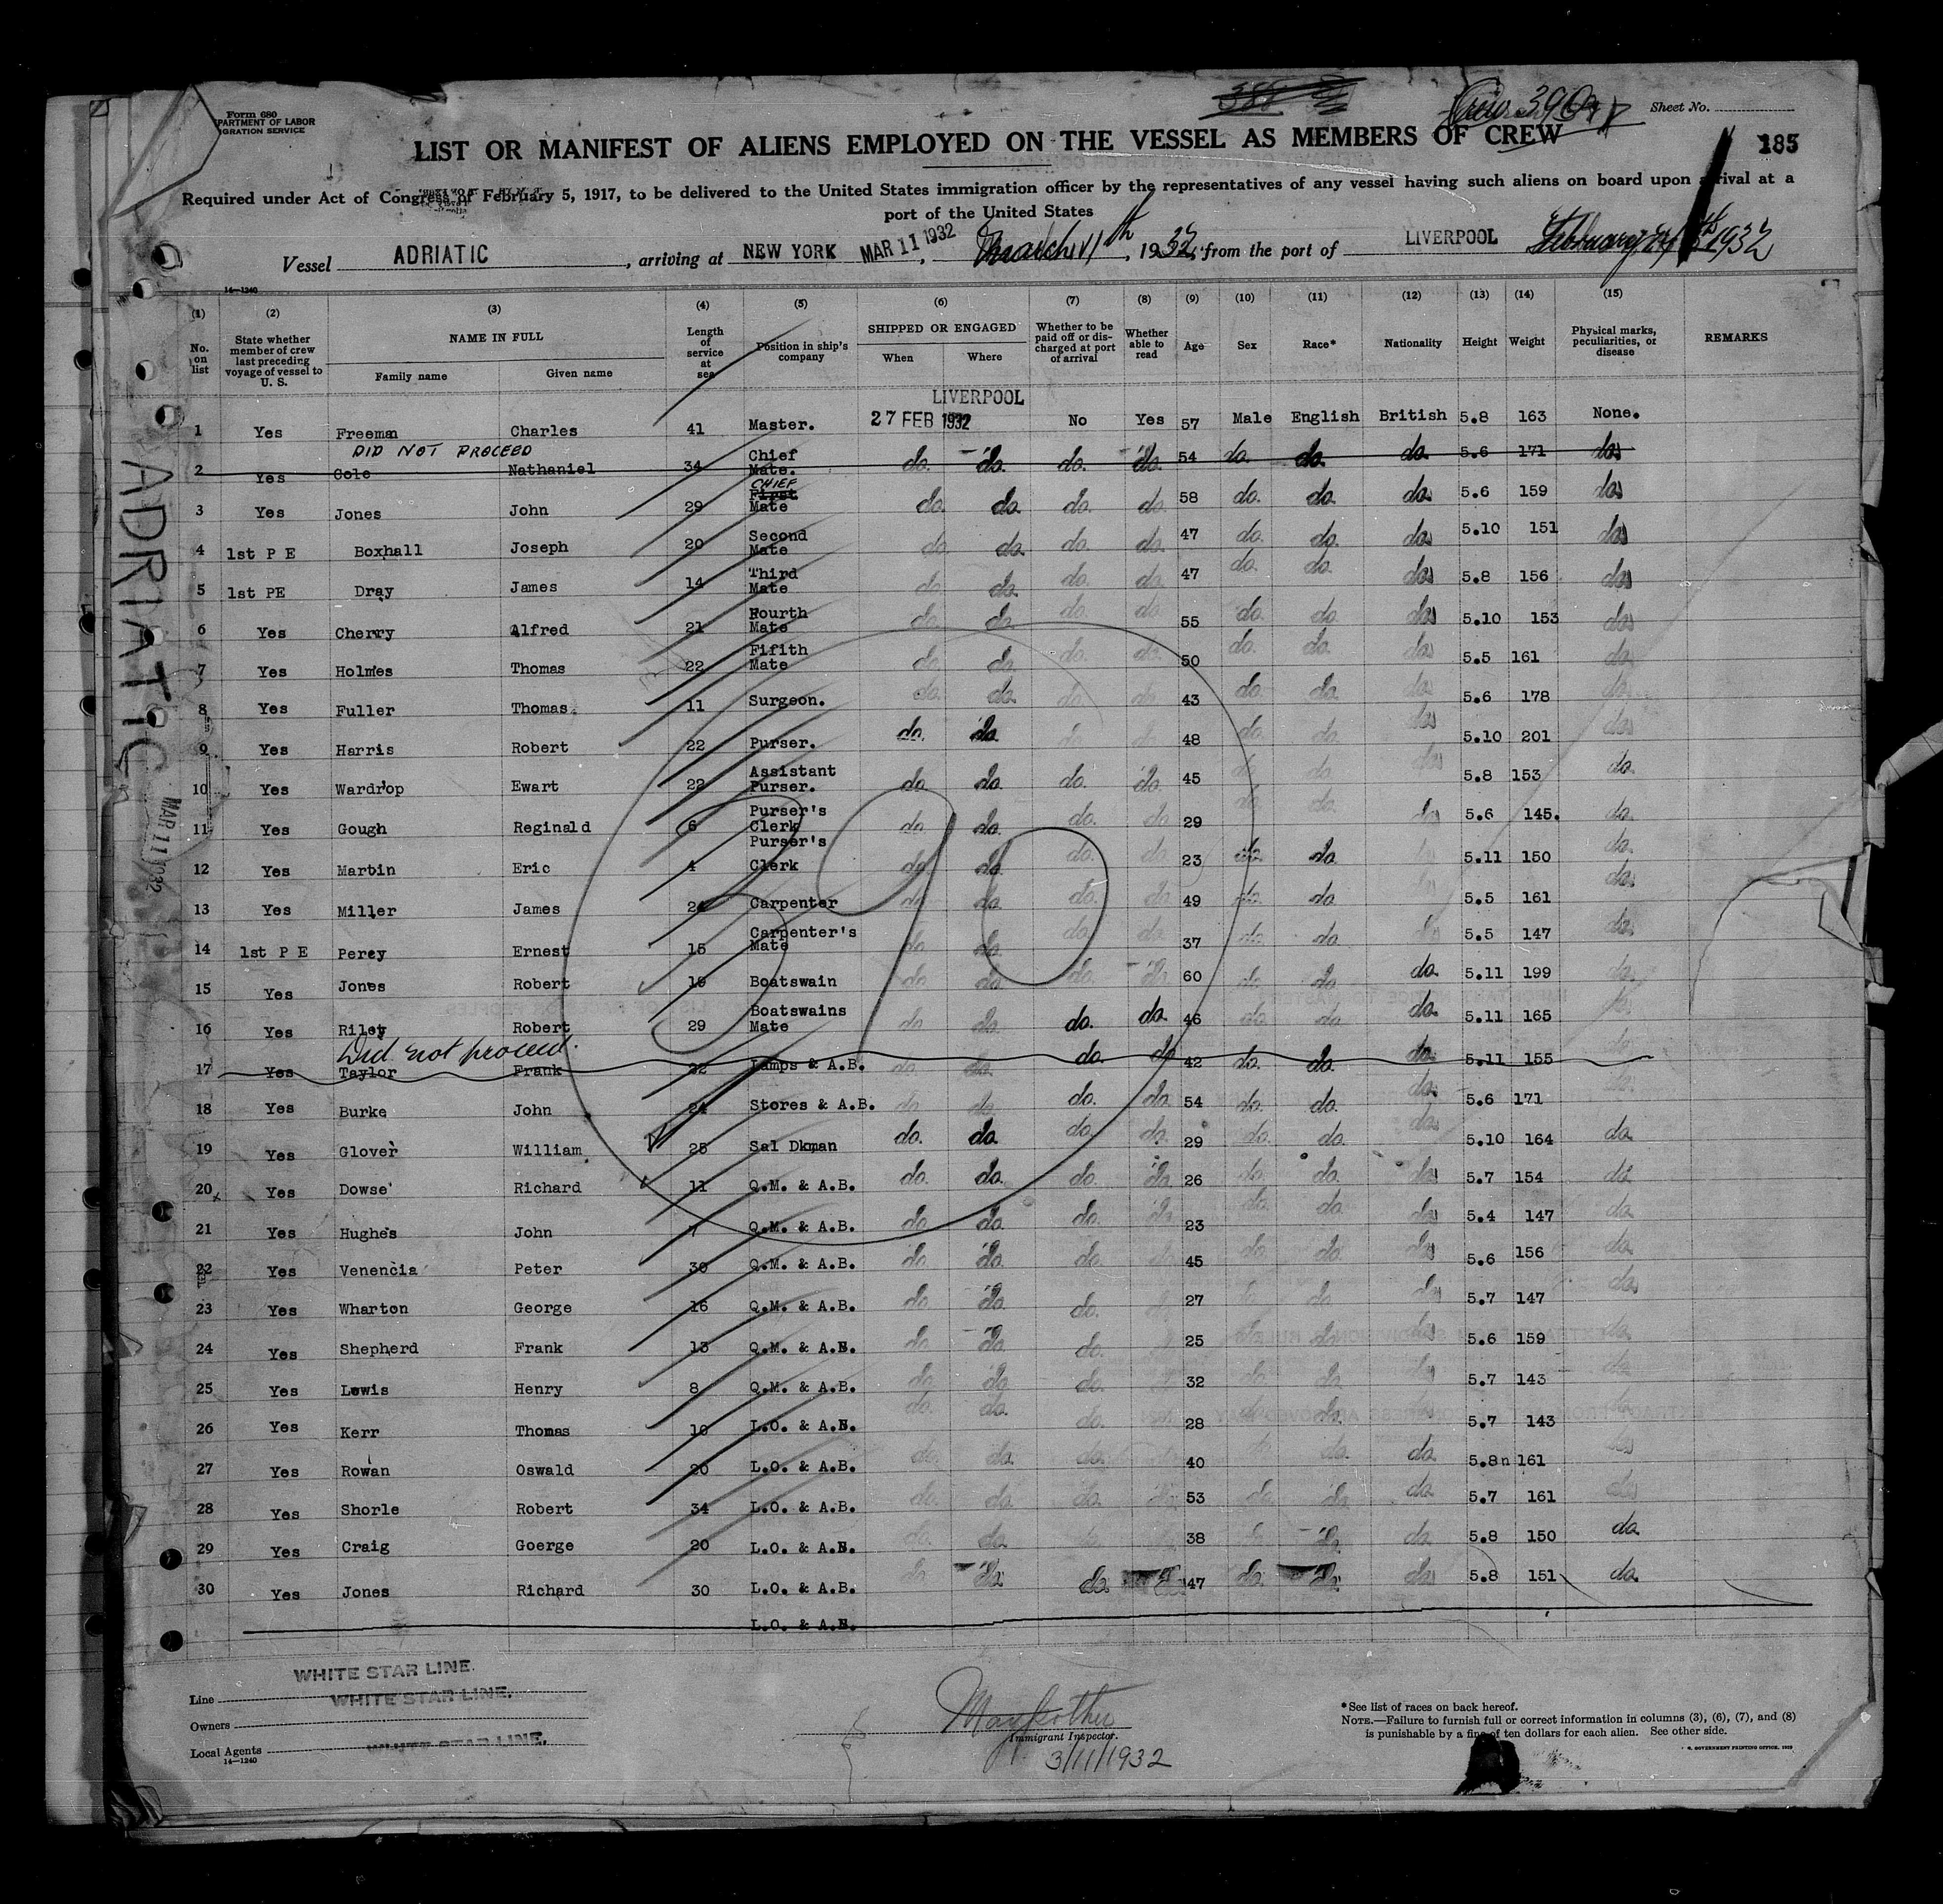 Form 680
PARTMENT OF LABOR
GRATION SERVICE
Sheet No.
LIST OR MANIFEST OF ALIENS EMPLOYED ON THE VESSEL AS MEMBERS OF CREW
185
Required under Act of Congress of February 5, 1917, to be delivered to the United States immigration officer by the representatives of any vessel having such aliens on board upon arrival at a
port of the United States
Vessel ADRIATIC, arriving at NEW YORK MAR 11 1932, March 11th, 1932, from the port of LIVERPOOL February 27th 1932
14—1240
(1) (2) (3) (4) (5) (6) (7) (8) (9) (10) (11) (12) (13) (14) (15)
No. on list State whether member of crew last preceding voyage of vessel to U. S. NAME IN FULL Family name Given name Length of service at sea Position in ship's company SHIPPED OR ENGAGED When Where Whether to be paid off or discharged at port of arrival Whether able to read Age Sex Race* Nationality Height Weight Physical marks, peculiarities, or disease REMARKS
LIVERPOOL
1 Yes Freeman Charles 41 Master. 27 FEB 1932 No Yes 57 Male English British 5.8 163 None.
DID NOT PROCEED
2 Yes Cole Nathaniel 34 Chief Mate. do. do. do. do. 54 do. do. do. 5.6 171 do
3 Yes Jones John 29 First CHIEF Mate do. do. do. do. 58 do. do. do 5.6 159 do
4 1st P E Boxhall Joseph 20 Second Mate do. do. do. do. 47 do. do. do 5.10 151 do
5 1st PE Dray James 14 Third Mate do. do. do. do. 47 do. do. do 5.8 156 do
6 Yes Cherry Alfred 21 Fourth Mate do. do. do. do. 55 do. do. do 5.10 153 do
7 Yes Holmes Thomas 22 Fifith Mate do. do. do. do. 50 do. do. do 5.5 161 do
8 Yes Fuller Thomas. 11 Surgeon. do. do. do. do. 43 do. do. do 5.6 178 do
9 Yes Harris Robert 22 Purser. do. do. do. do. 48 do. do. do 5.10 201 do
10 Yes Wardrop Ewart 22 Assistant Purser. do. do. do. do. 45 do. do. do 5.8 153 do.
11 Yes Gough Reginald 6 Purser's Clerk do. do. do. do. 29 do. do. do 5.6 145. do.
12 Yes Martin Eric 4 Purser's Clerk do. do. do. do. 23 do. do. 5.11 150 do.
13 Yes Miller James 24 Carpenter do. do. do. do. 49 do. do. 5.5 161 do.
14 1st P E Percy Ernest 15 Carpenter's Mate do. do. do. do. 37 do. do. do 5.5 147 do.
15 Yes Jones Robert 19 Boatswain do. do. do. do. 60 do. do. do. 5.11 199 do.
16 Yes Riley Robert 29 Boatswains Mate do. do. do. do. 46 do. do. do. 5.11 165 do.
Did not proceed.
17 Yes Taylor Frank 22 Lamps & A.B. do. do. do. do 42 do. do. do. 5.11 155 do.
18 Yes Burke John 24 Stores & A.B. do. do. do. do. 54 do. do. do. 5.6 171
19 Yes Glover William 25 Sal Dkman do. do. do. do. 29 do. do. do. 5.10 164 do.
20 Yes Dowse Richard 11 Q.M. & A.B. do. do. do. do. 26 do. do. do 5.7 154 do.
21 Yes Hughes John 7 Q.M. & A.B. do. do. do. do. 23 do. do. do 5.4 147 do.
22 Yes Venencia Peter 30 Q.M. & A.B. do. do. do. 45 do. do. do 5.6 156 do.
23 Yes Wharton George 16 Q.M. & A.B. do. do. do. 27 do. do. do 5.7 147 do.
24 Yes Shepherd Frank 13 Q.M. & A.B. do. do. do. 25 do. do. do 5.6 159 do.
25 Yes Lewis Henry 8 Q.M. & A.B. do. do. do. 32 do. do. do 5.7 143 do.
26 Yes Kerr Thomas 10 L.O. & A.B. do. do. do. 28 do. do. do 5.7 143 do.
27 Yes Rowan Oswald 20 L.O. & A.B. do. do. do. 40 do. do. 5.8n 161 do
28 Yes Shorle Robert 34 L.O. & A.B. do. do. do. do. 53 do. do. do. 5.7 161 do
29 Yes Craig Goerge 20 L.O. & A.B. do. do. 38 do. do. 5.8 150 do.
30 Yes Jones Richard 30 L.O. & A.B. do. do. do. do. 47 do. do. do. 5.8 151 do.
L.O. & A.B.
ADRIATIC
MAR 11 1932
390
WHITE STAR LINE.
Line
WHITE STAR LINE.
Owners
Local Agents WHITE STAR LINE.
14—1240
Immigrant Inspector.
3/11/1932
*See list of races on back hereof.
NOTE.—Failure to furnish full or correct information in columns (3), (6), (7), and (8)
is punishable by a fine of ten dollars for each alien. See other side.
GOVERNMENT PRINTING OFFICE